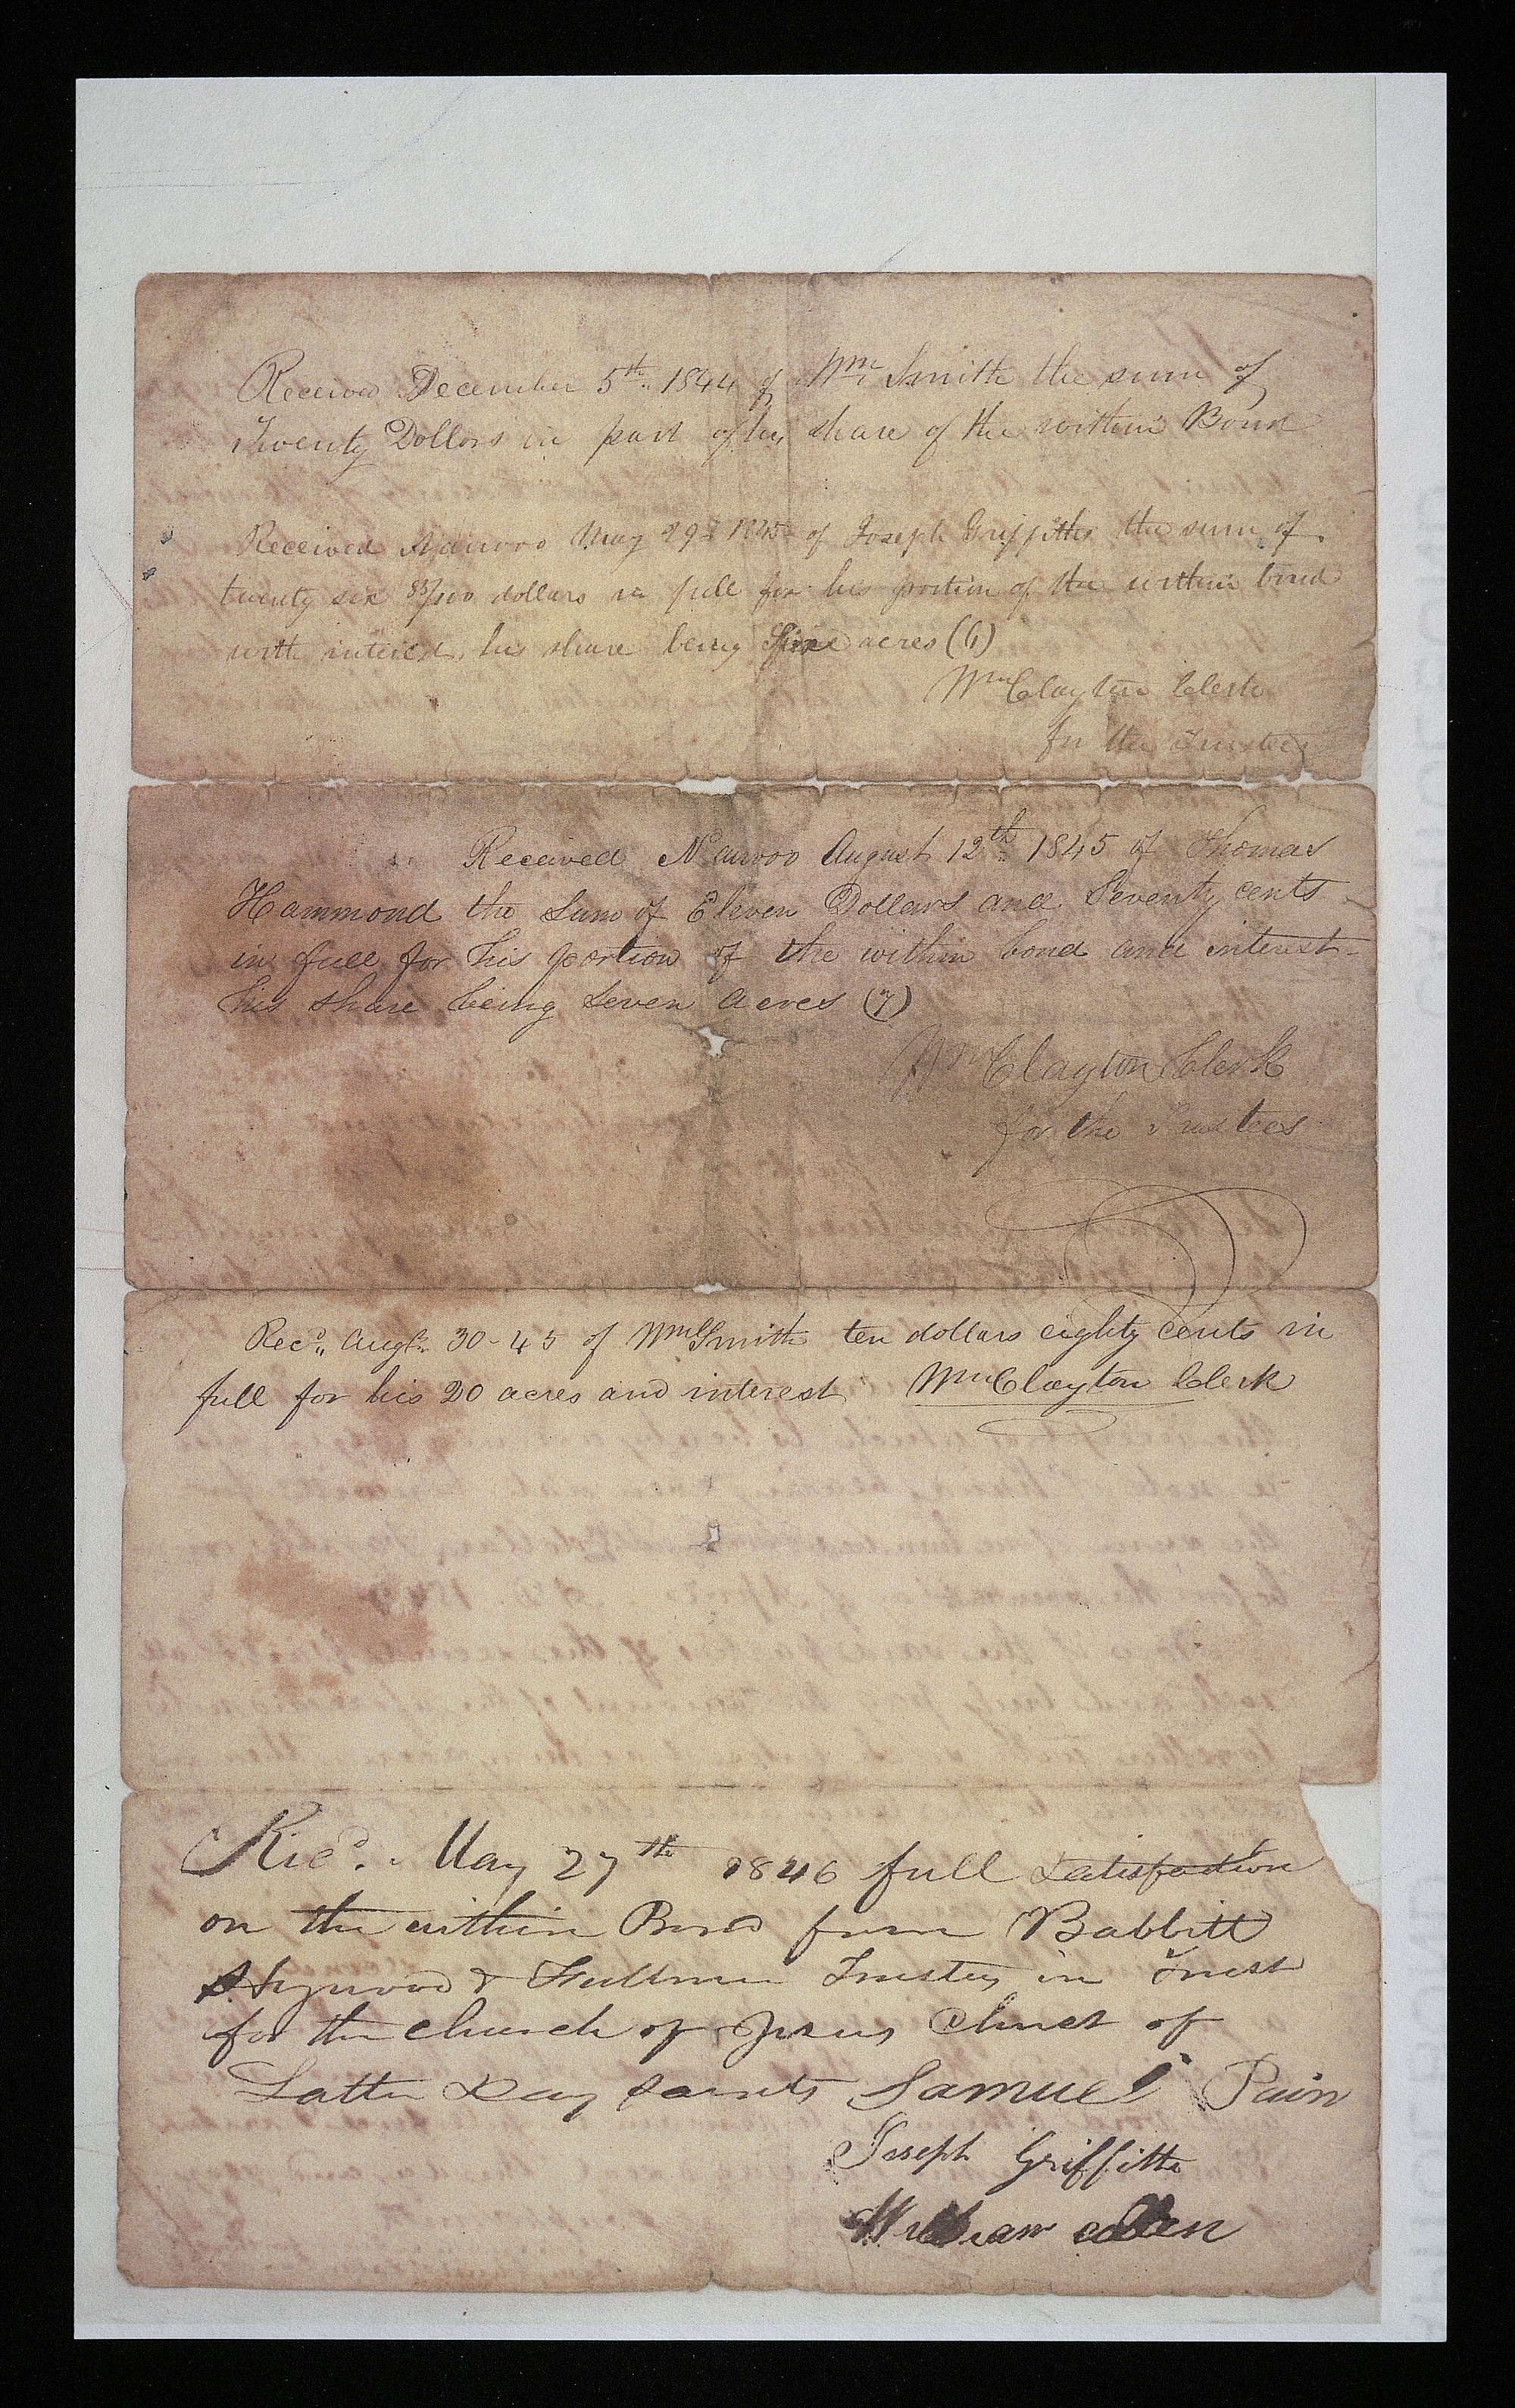 Received December 5th 1844 of Wm Smith the sum of
Twenty Dollars in part of his share of the within Bond
Received Nauvoo May 29th 1845 of Joseph Griffiths the sum of
twenty six 83/100 dollars in full for his portion of the within bond
with interest, his share being acres (6)
Wm Clayton Clerk
for the Trustees
Received Nauvoo August 12th 1845 of Thomas
Hammond the Sum of Eleven Dollars and Seventy cents
in full for his portion of the within bond and interest
his share being Seven Acres (7)
Wm Clayton Clerk
for the Trustees
Recd. Augt. 30-45 of Wm Smith ten dollars eighty cents in
full for his 20 acres and interest Wm Clayton Clerk
Recd. May 27th 1846 full satisfaction
on the within Bond from Babbitt
Heywood & Fullmer Trustees in Trust
for the church of Jesus Christ of
Latter Day saints Samuel Pain
Joseph Griffitts
William